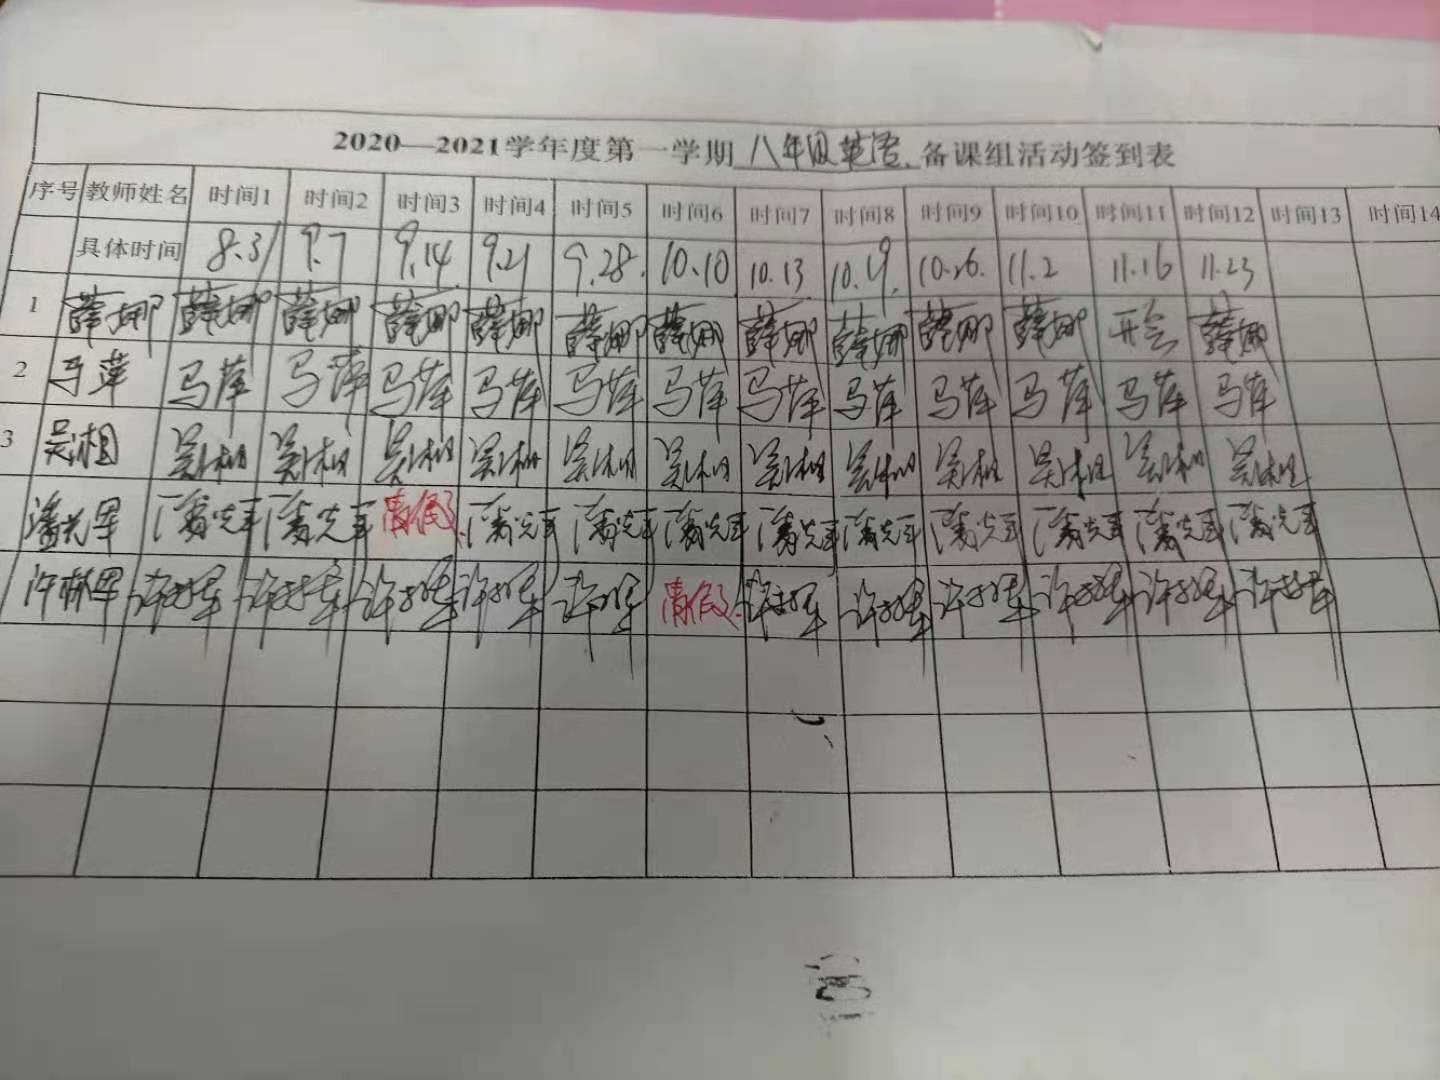 2020—2021学年度第一学期 八年级英语 备课组活动签到表
序号 教师姓名 时间1 时间2 时间3 时间4 时间5 时间6 时间7 时间8 时间9 时间10 时间11 时间12 时间13 时间14
具体时间 8.31 9.7 9.14 9.21 9.28. 10.10 10.13 10.19. 10.26. 11.2 11.16 11.23
1 薛娜 薛娜 薛娜 薛娜 薛娜 薛娜 薛娜 薛娜 薛娜 薛娜 薛娜 开会 薛娜
2 马萍 马萍 马萍 马萍 马萍 马萍 马萍 马萍 马萍 马萍 马萍 马萍 马萍
3 吴相 吴相 吴相 吴相 吴相 吴相 吴相 吴相 吴相 吴相 吴相 吴相 吴相
潘光军 潘光军 潘光军 请假. 潘光军 潘光军 潘光军 潘光军 潘光军 潘光军 潘光军 潘光军 潘光军
许林军 许林军 许林军 许林军 许林军 许林军 请假. 许林军 许林军 许林军 许林军 许林军 许林军